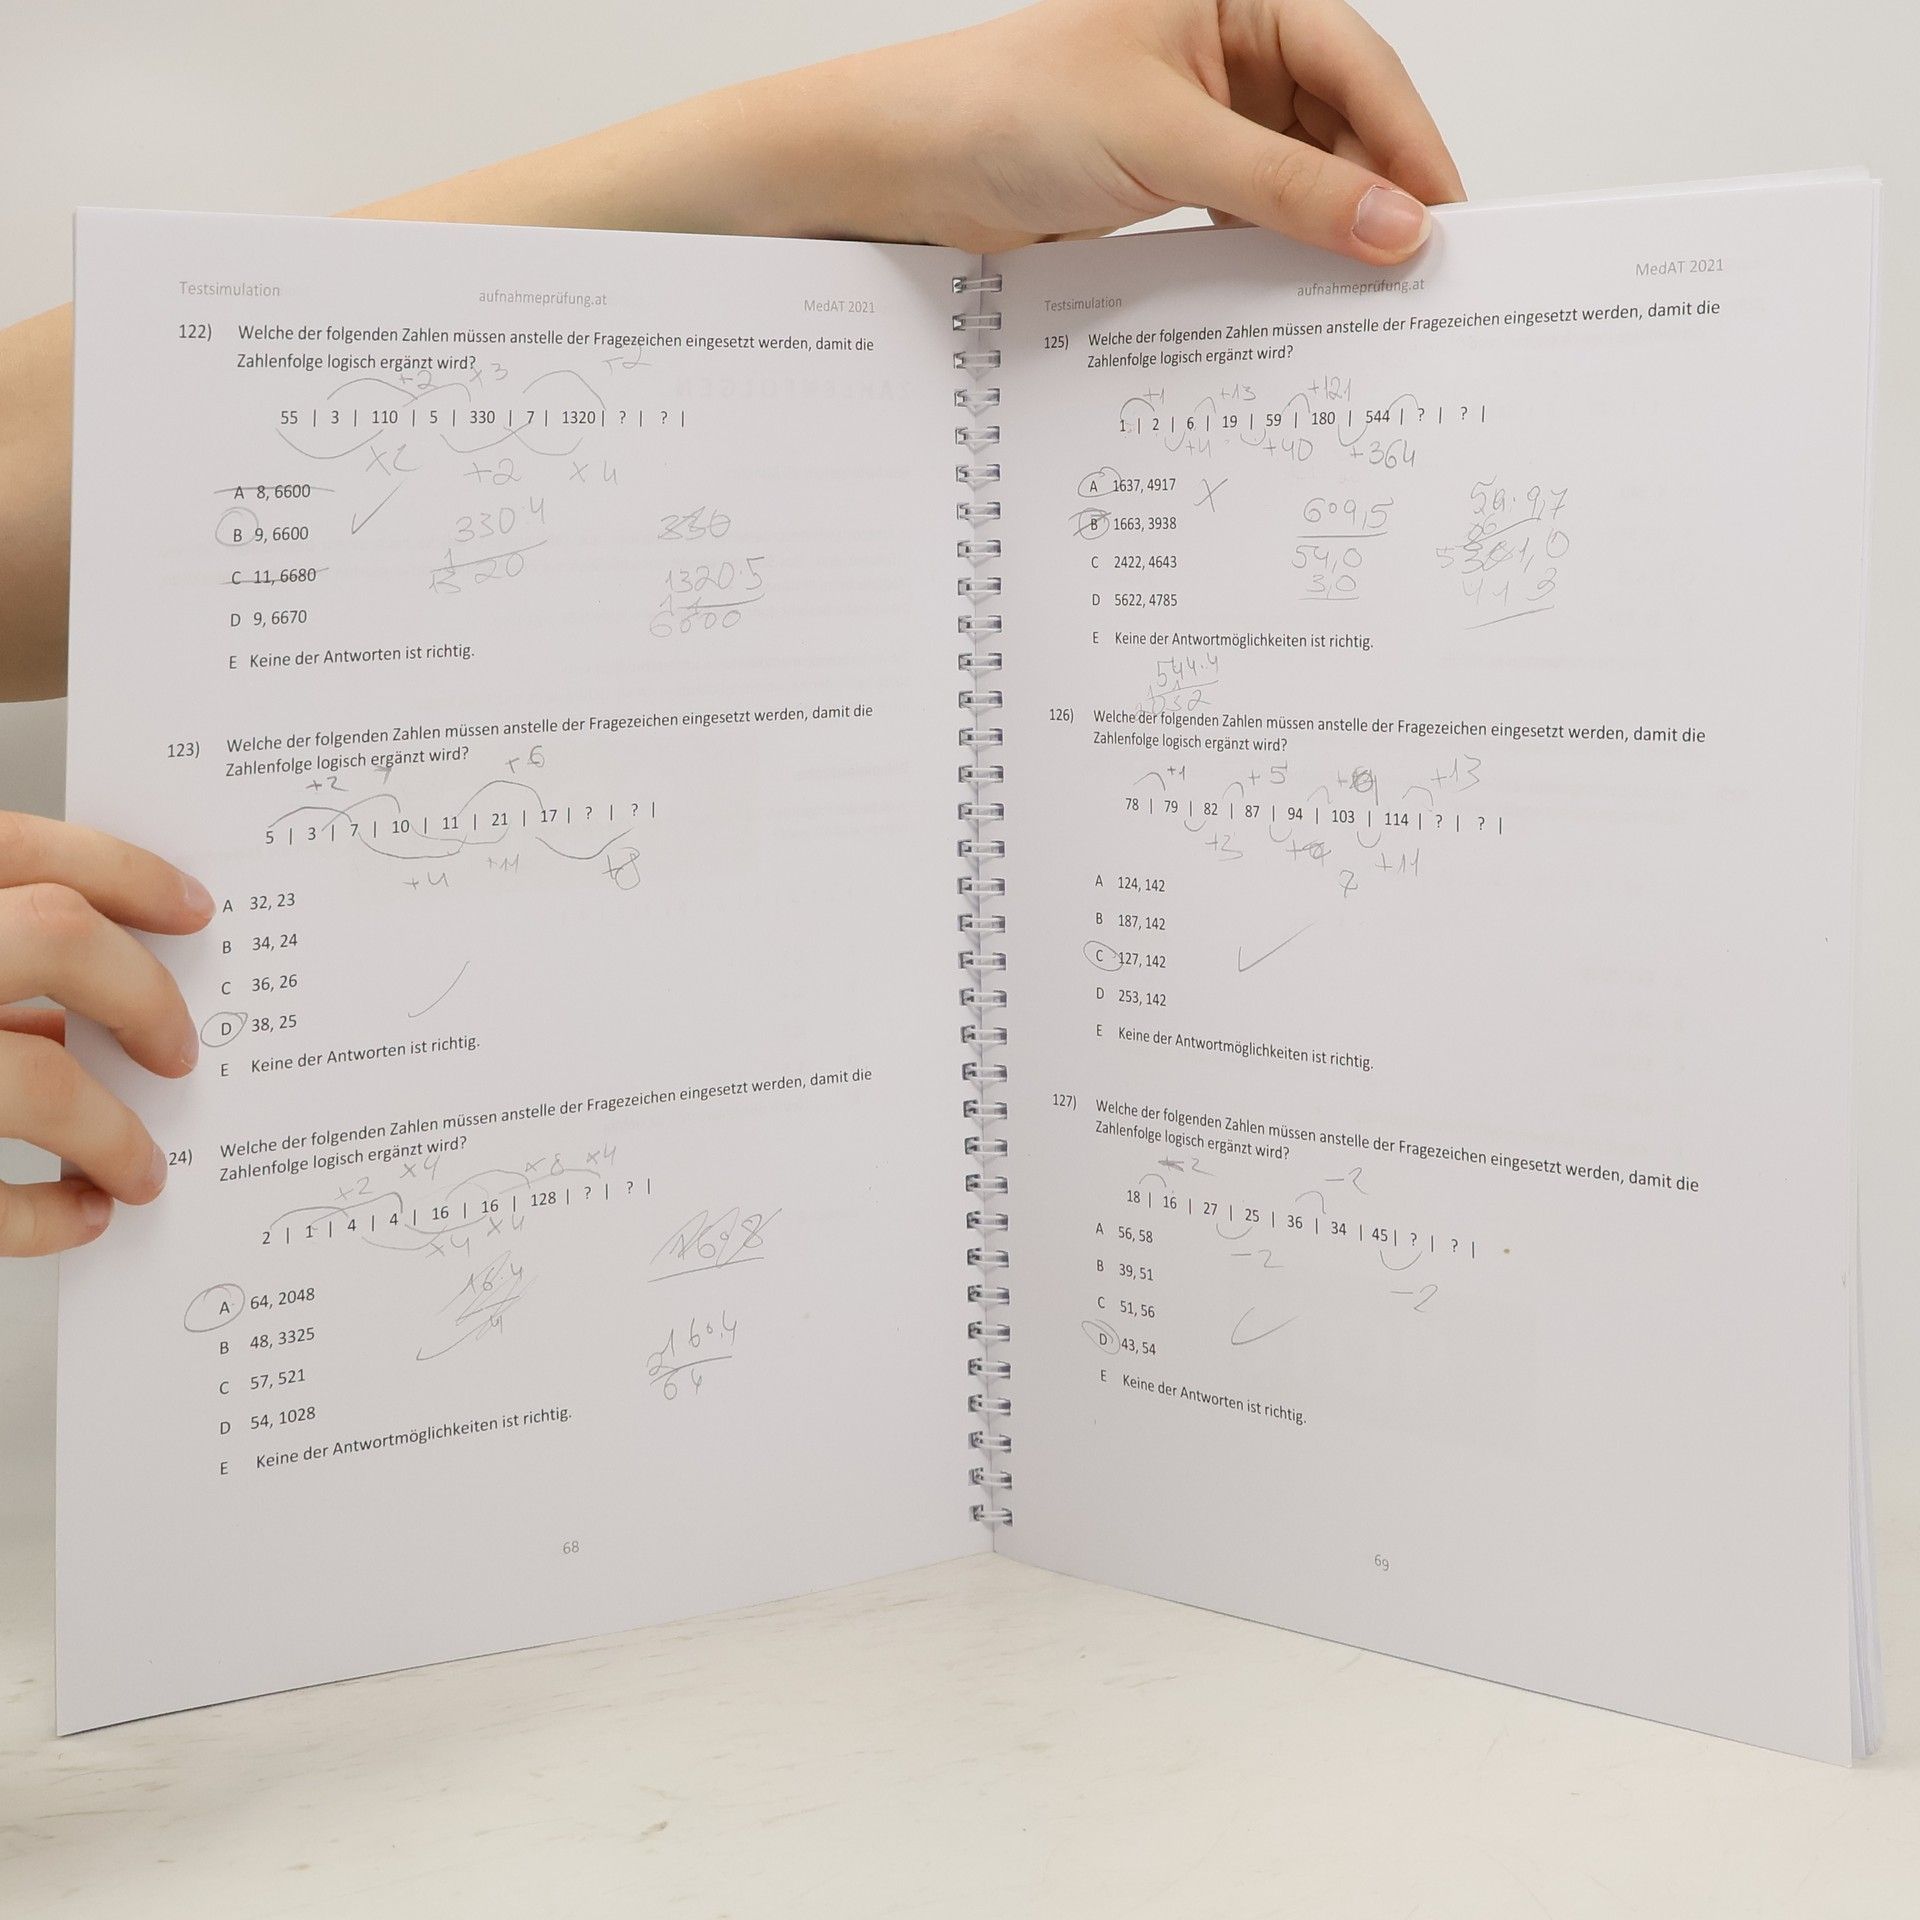 Testsimulation
aufnahmeprüfung.at
MedAT 2021
122) Welche der folgenden Zahlen müssen anstelle der Fragezeichen eingesetzt werden, damit die
Zahlenfolge logisch ergänzt wird?
+2 x3 +2
55 | 3 | 110 | 5 | 330 | 7 | 1320 | ? | ? |
x2 +2 x4
A 8, 6600
B 9, 6600
C 11, 6680
D 9, 6670
E Keine der Antworten ist richtig.
330·4
1320
330
1320·5
6600
123) Welche der folgenden Zahlen müssen anstelle der Fragezeichen eingesetzt werden, damit die
Zahlenfolge logisch ergänzt wird?
+2 7 +6
5 | 3 | 7 | 10 | 11 | 21 | 17 | ? | ? |
+4 +11 +8
A 32, 23
B 34, 24
C 36, 26
D 38, 25
E Keine der Antworten ist richtig.
24) Welche der folgenden Zahlen müssen anstelle der Fragezeichen eingesetzt werden, damit die
Zahlenfolge logisch ergänzt wird?
+2 x4 x8 x4
2 | 1 | 4 | 4 | 16 | 16 | 128 | ? | ? |
x4 x4
A 64, 2048
B 48, 3325
C 57, 521
D 54, 1028
E Keine der Antwortmöglichkeiten ist richtig.
16·4
16·8
16·4
64
68
Testsimulation
aufnahmeprüfung.at
MedAT 2021
125) Welche der folgenden Zahlen müssen anstelle der Fragezeichen eingesetzt werden, damit die
Zahlenfolge logisch ergänzt wird?
+1 +13 +121
1 | 2 | 6 | 19 | 59 | 180 | 544 | ? | ? |
+4 +40 +364
A 1637, 4917
B 1663, 3938
C 2422, 4643
D 5622, 4785
E Keine der Antwortmöglichkeiten ist richtig.
X
609,5
54,0
3,0
59·9,7
413
544·4
126) Welche der folgenden Zahlen müssen anstelle der Fragezeichen eingesetzt werden, damit die
Zahlenfolge logisch ergänzt wird?
+1 +5 +9 +13
78 | 79 | 82 | 87 | 94 | 103 | 114 | ? | ? |
+3 7 +11
A 124, 142
B 187, 142
C 127, 142
D 253, 142
E Keine der Antwortmöglichkeiten ist richtig.
127) Welche der folgenden Zahlen müssen anstelle der Fragezeichen eingesetzt werden, damit die
Zahlenfolge logisch ergänzt wird?
-2 -2
18 | 16 | 27 | 25 | 36 | 34 | 45 | ? | ? |
-2 -2
A 56, 58
B 39, 51
C 51, 56
D 43, 54
E Keine der Antworten ist richtig.
69